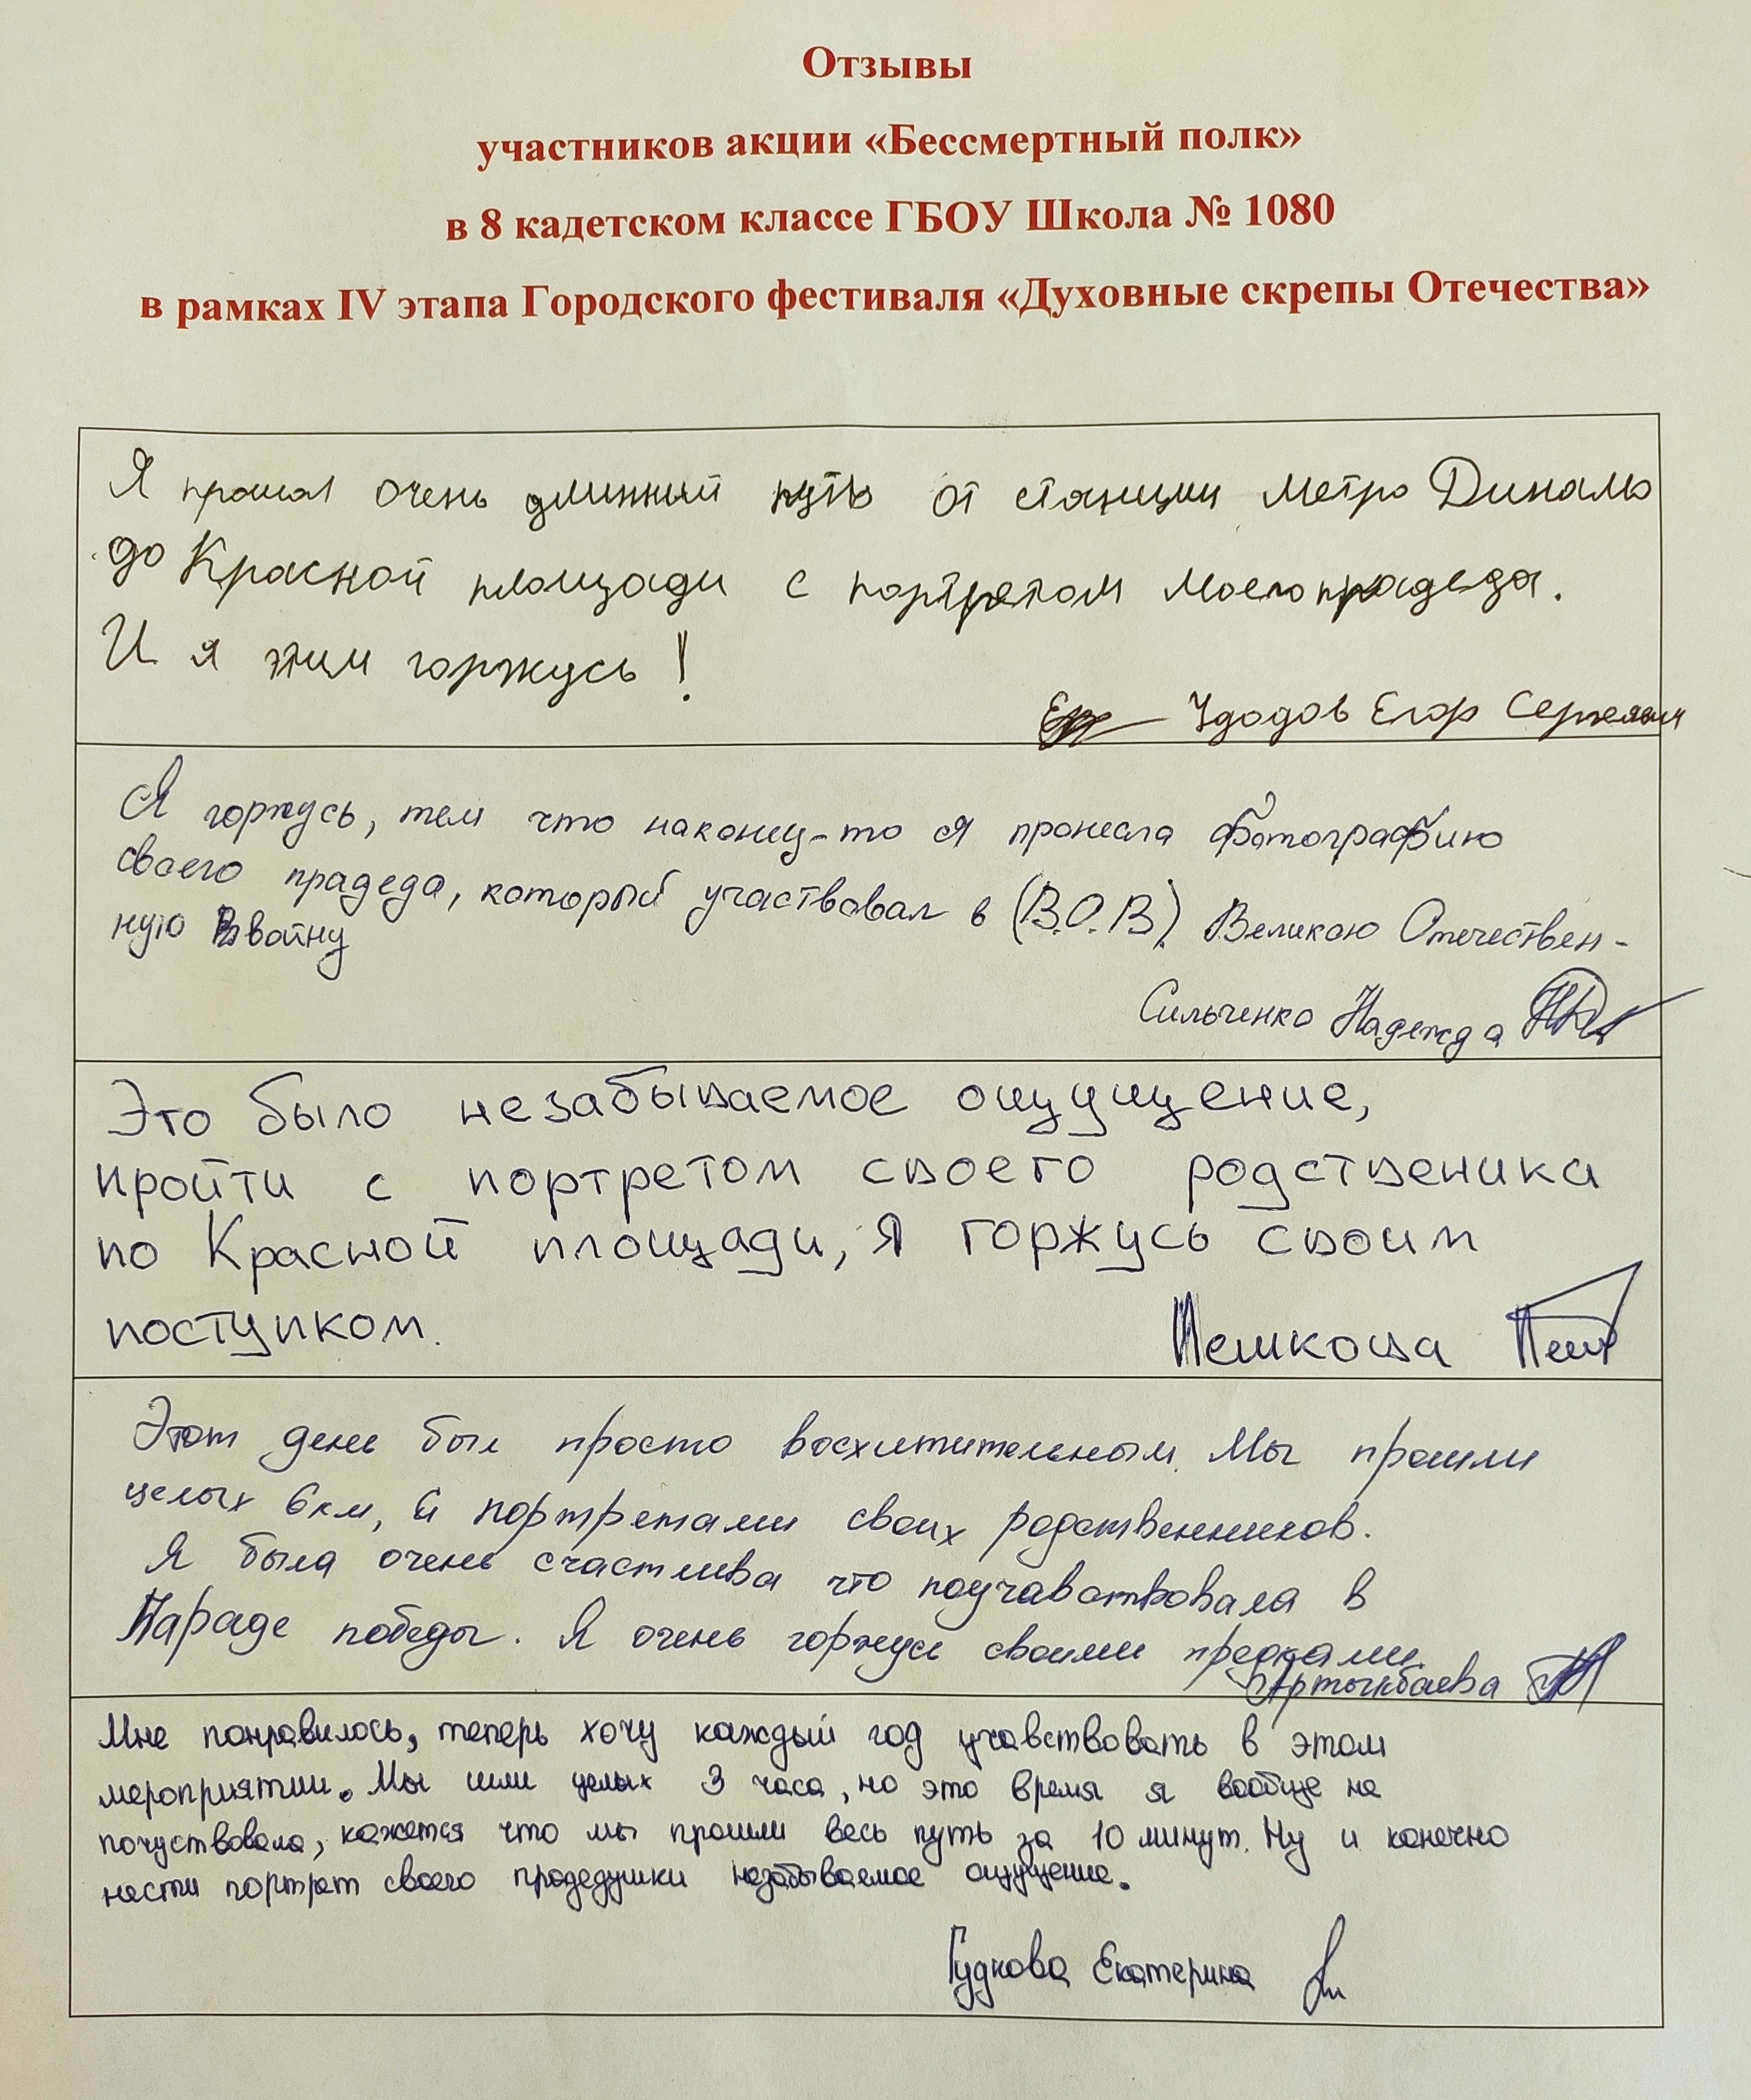 Отзывы
участников акции «Бессмертный полк»
в 8 кадетском классе ГБОУ Школа № 1080
в рамках IV этапа Городского фестиваля «Духовные скрепы Отечества»
Я прошол очень длинный путь от станции метро Динамо
до Красной площади с портретом моего прадеда.
И я этим горжусь!
Удодов Егор Сергеевич
Я горжусь, тем что наконец-то я пронесла фотографию
своего прадеда, который участвовал в (В.О.В). Великою Отечествен-
ную войну
Сильченко Надежда
Это было незабываемое ощущение,
пройти с портретом своего родственика
по Красной площади, я горжусь своим
поступком.
Пешкова Пеш
Этот день был просто восхитительным. Мы прошли
целых 6 км, с портретами своих родственников.
Я была очень счастлива что поучавствовала в
Параде победы. Я очень горжусь своими предками
Артыкбаева
Мне понравилось, теперь хочу каждый год учавствовать в этом
мероприятии. Мы шли целых 3 часа, но это время я вообще не
почуствовала, кажется что мы прошли весь путь за 10 минут. Ну и конечно
нести портрет своего прадедушки незабываемое ощущение.
Гудкова Екатерина